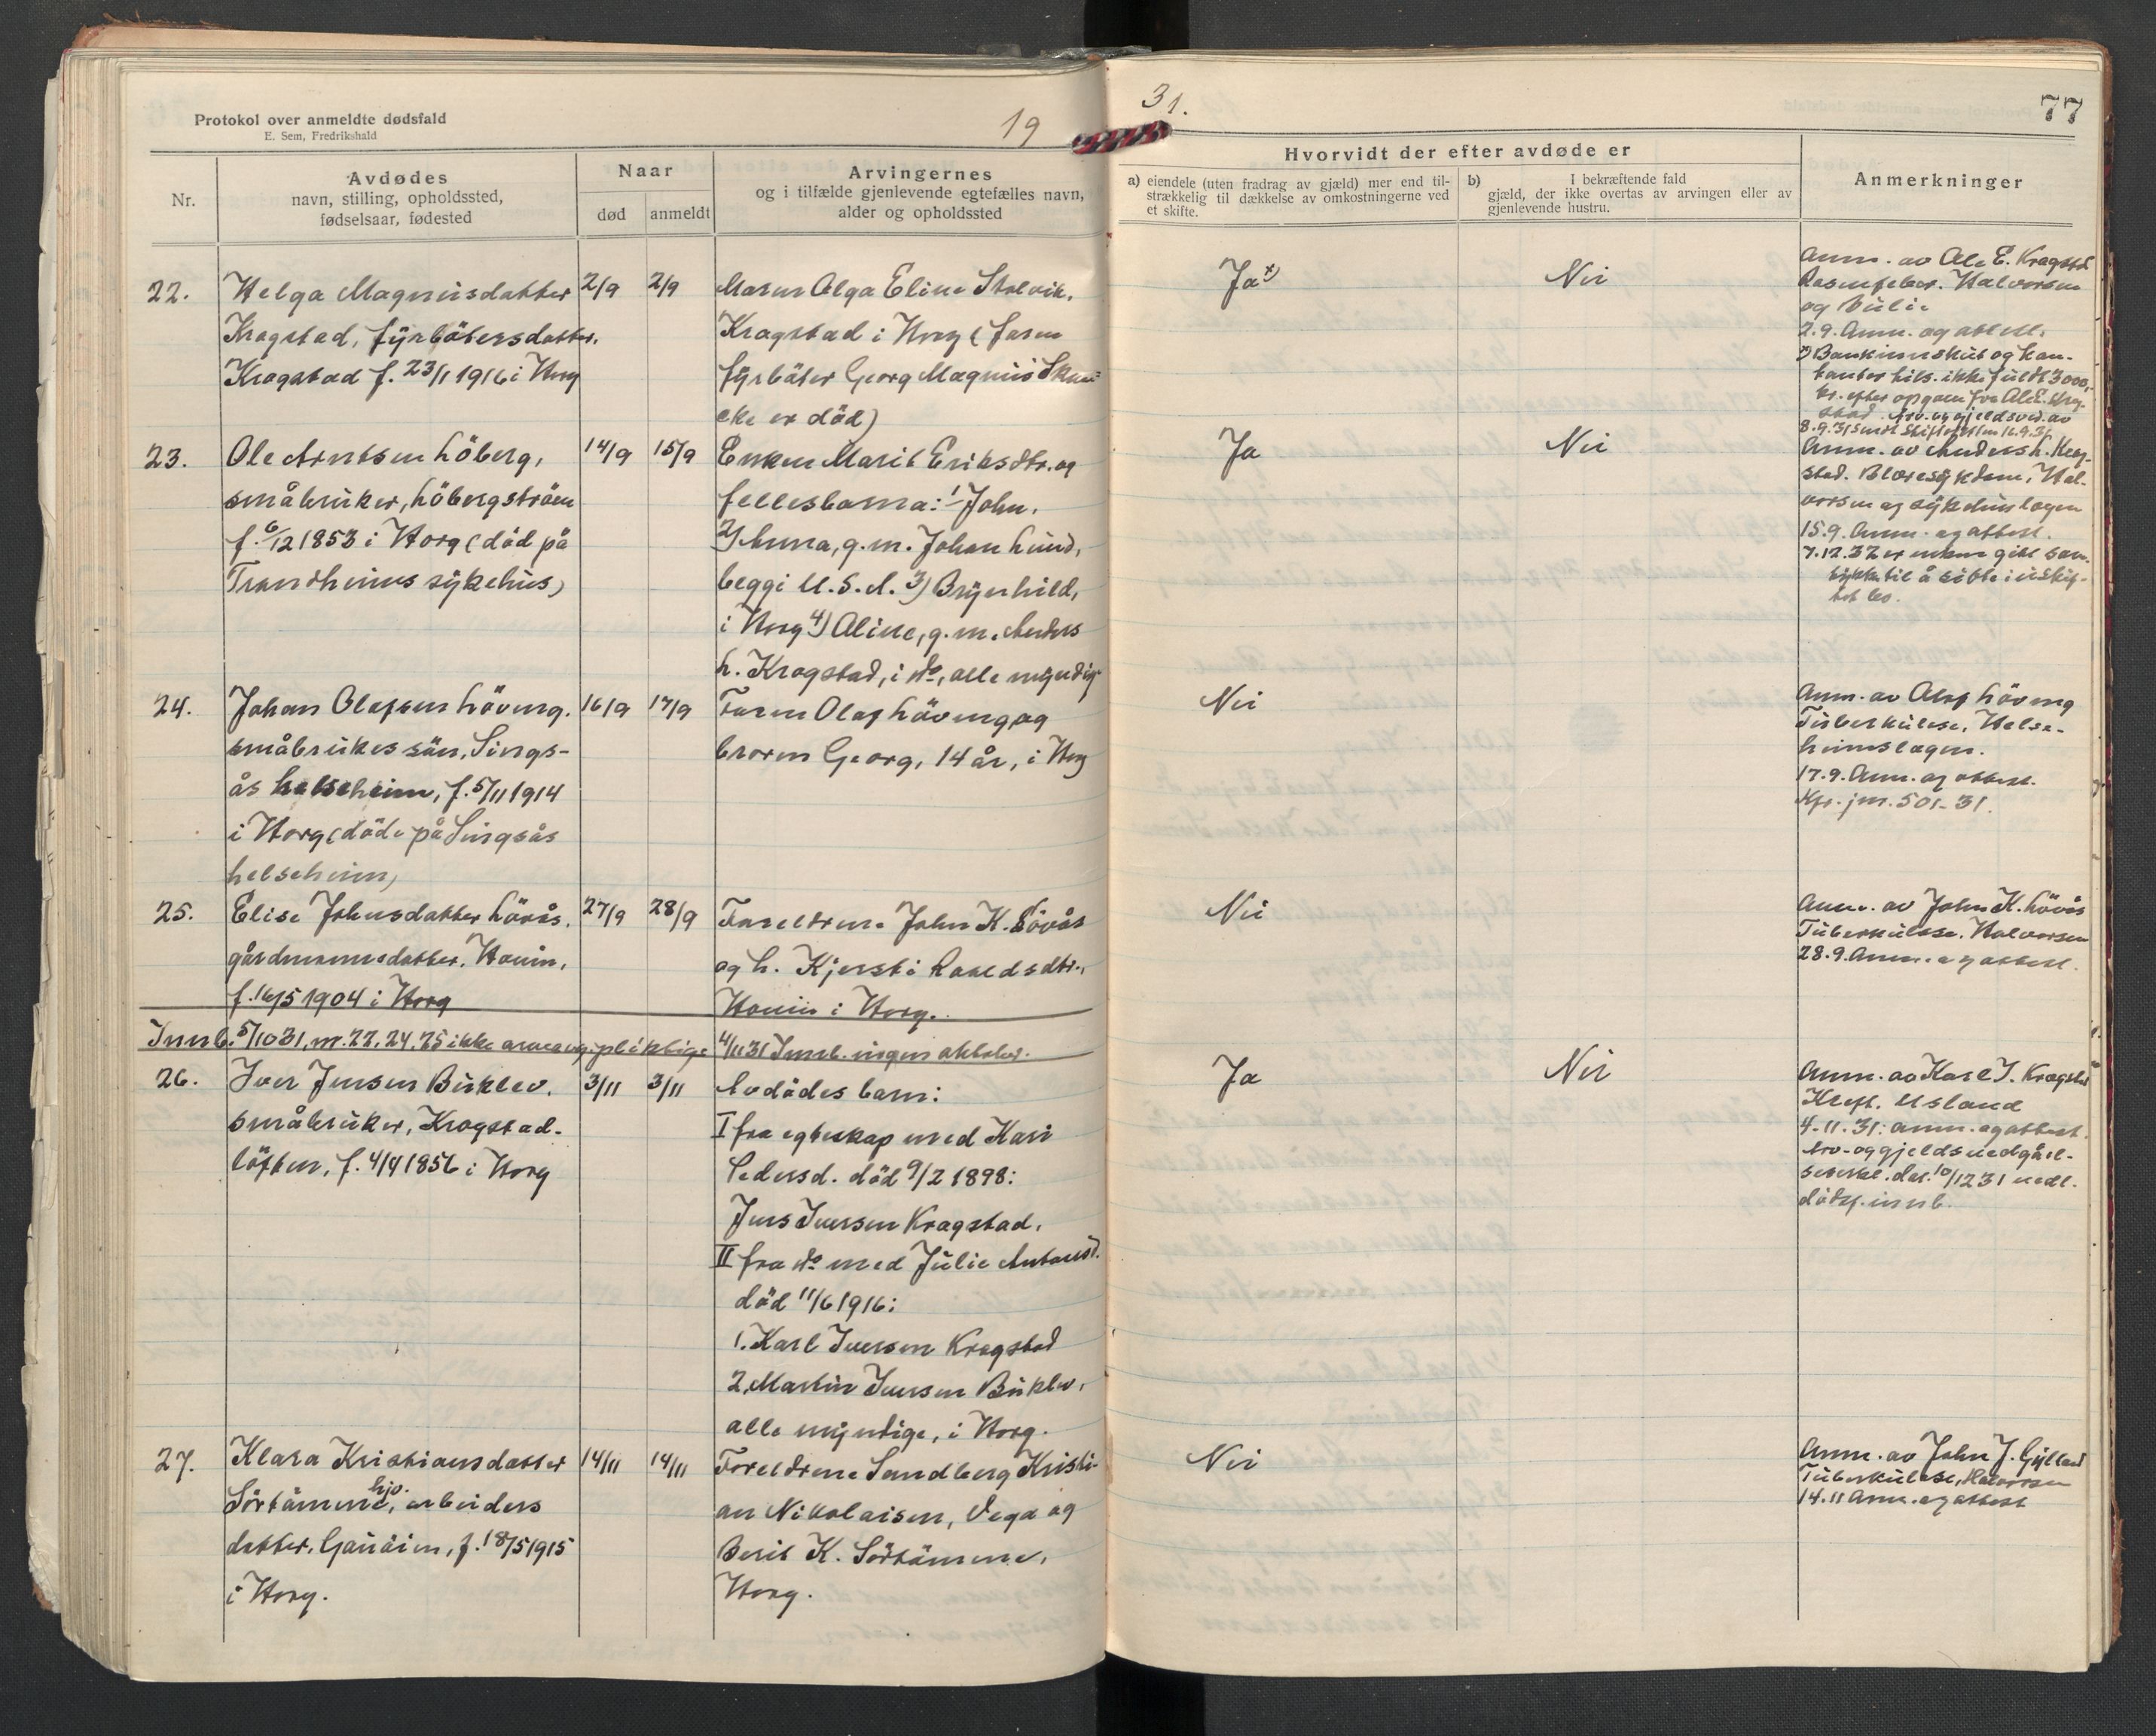 Protokol over anmeldte dødsfald
E. Sem, Fredrikshald
19
31.
77
Nr.
Avdødes
navn, stilling, opholdssted,
fødselsaar, fødested
Naar
død
anmeldt
Arvingernes
og i tilfælde gjenlevende egtefælles navn,
alder og opholdssted
Hvorvidt der efter avdøde er
a) eiendele (uten fradrag av gjæld) mer end til-
strækkelig til dækkelse av omkostningerne ved
et skifte.
b) I bekræftende fald
gjæld, der ikke overtas av arvingen eller av
gjenlevende hustru.
Anmerkninger
22.
Helga Magnusdatter
Kragstad, fyrbötersdatter,
Kragstad f. 23/1 1916 i Horg
2/9
2/9
Moren Olga Eline Stolvik,
Kragstad i Horg (faren
fyrböter Georg Magnus
eke er död)
Ja x)
Nei
Anm. av Ole E. Kragstad
Halvorsen
og
2.9. Anm. og attest.
x) Bankinnskut og kon-
tanter tils. ikke fullt 3000,-
kr. efter opgave fra Ole E. Krag-
stad. Arv. og gjeldsved. av
8.9.31 sendt Skifteretten 16.9.31
23.
Ole Arntsen Löberg,
småbruker, Löbergströen
f. 6/12 1853 i Horg (död på
Trondheims sykehus)
14/9
15/9
Enken Marit Eriksdtr. og
fellesbarna: 1) John,
2) Anna, g.m. Johan Lund,
beggi U.S.A. 3) Brynhild,
i Horg 4) Oline, g.m. Anders
L. Kragstad, i do, alle myndig
Ja
Nei
Anm. av Anders L. Krag-
stad. Blæresykdom, Hal-
vorsen og sykehuslægen
15.9. Anm. og attest.
7.12.32 er enken gitt sam-
tykke til å sitte i uskif-
tet bo.
24.
Johan Olafsen Lövseng,
småbrukes sön, Sings-
ås helseheim, f. 5/11 1914
i Horg (döde på Singsås
helseheim)
16/9
17/9
Faren Olaf Lövseng og
broren Georg, 14 år, i Horg
Nei
Anm. av Olaf Lövseng
Tuberkulose, Helse-
heimslægen.
17.9. Anm. og attest.
Kfr. jnr. 501-31.
25.
Elise Johnsdatter Lövås,
gårdmannsdatter, Hovin,
f. 16/5 1904 i Horg
27/9
28/9
Foreldrene John K. Lövås
og h. Kjersti Loredsdtr.,
Hovin i Horg.
Nei
Anm. av John K. Lövås
Tuberkulose. Halvorsen
28.9. Anm. og attest.
Innb. 5/10 31, nr. 22, 24, 25 ikke arveavg. pliktige
4/11 31 Innb. ingen oktober.
26.
Iver Jensen Buklev,
småbruker, Kragstad-
löften, f. 4/4 1856 i Horg
3/11
3/11
Avdödes barn:
I fra egteskap med Kari
Pedersd. död 9/2 1898:
Jens Iversen Kragstad.
II fra do med Julie Antonsd.
död 11/6 1916:
1. Karl Iversen Kragstad
2. Martin Iversen Buklev,
alle myndige, i Horg.
Ja
Nei
Anm. av Karl I. Kragstad
4-11.31: anm. og attest.
Arv- og gjeldsvedgåel-
seserkl. dat. 10/12 31 vedl.
dödsf. innb.
27.
Klara Kristiansdatter
Sörtömme, hjv. arbeiders
datter, Gauöien, f. 18/5 1915
i Horg.
14/11
14/11
Foreldrene Sandberg Kristi-
an Nikolaisen, Vega og
Berit K. Sörtömme,
Horg.
Nei
Anm. av John J. Gylland
Tuberkulose, Halvorsen
14.11 Anm. og attest